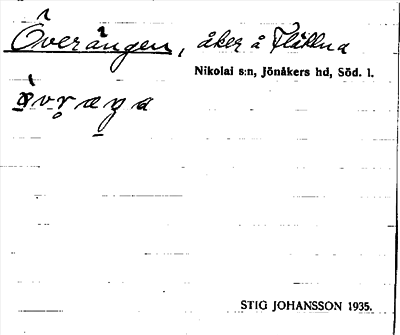 Överängen, åker å Fläkna
Nikolai s:n, Jönåkers hd, Söd. l.
STIG JOHANSSON 1935.